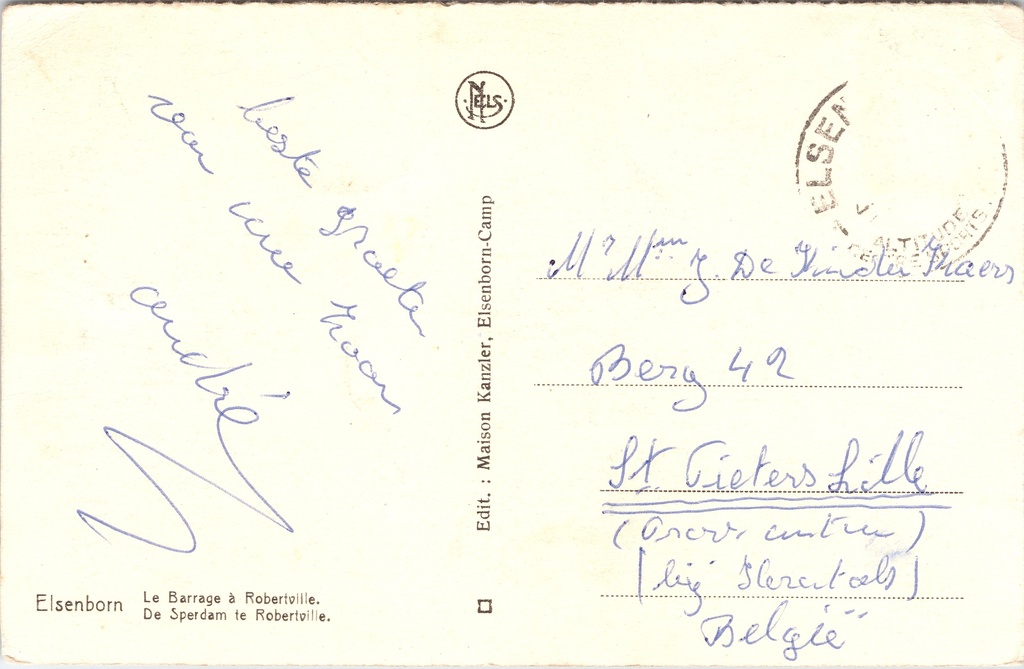 beste groeten
van uw zoon
andré
Elsenborn
Le Barrage à Robertville.
De Sperdam te Robertville.
NELS
Edit. : Maison Kanzler, Elsenborn-Camp
ELSEN
ALTITUDE
Mr Mme J. De Kinder
Berg 42
St. Pieters Lille
(Prov. antw)
(bij Herentals)
België